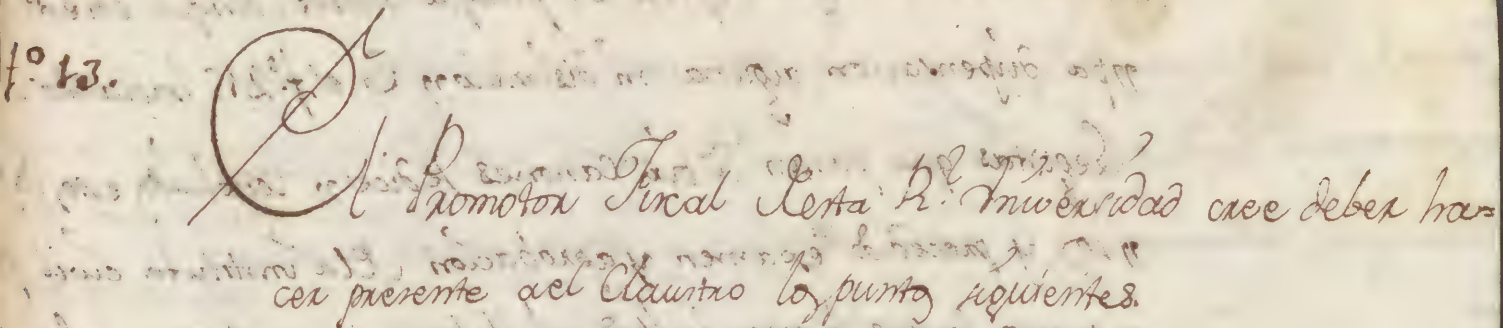 fº 13.
El Promotor Fiscal desta Rl. Universidad cree deber ha=
cer presente ael Claustro los puntos siguientes.